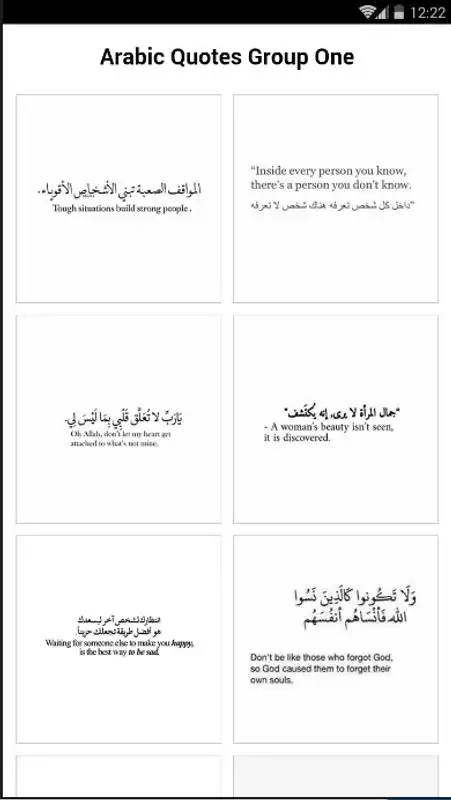 12:22
Arabic Quotes Group One
المواقف الصعبة تبني الأشخاص الأقوياء.
Tough situations build strong people .
“Inside every person you know,
there's a person you don't know.
داخل كل شخص تعرفه هناك شخص لا تعرفه”
يَارَبِّ لا تُعَلَّق قَلْبِي بِمَا لَيْسَ لِي.
Oh Allah, don't let my heart get
attached to what's not mine.
“جمال المرأة لا يرى, إنه يُكتَشف”
- A woman's beauty isn't seen,
it is discovered.
انتظارك لشخص آخر ليسعدك
هو أفضل طريقة تجعلك حزيناً.
Waiting for someone else to make you happy,
is the best way to be sad.
وَلَا تَكُونوا كَالَّذِينَ نَسُوا
الله فَأَنْسَاهُم أنفُسَهُم
Don't be like those who forgot God,
so God caused them to forget their
own souls.